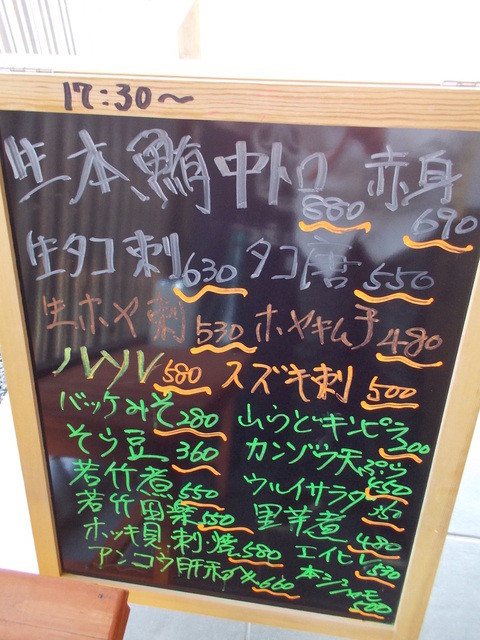 17:30～
生本鮪中トロ 880 赤身 690
生タコ刺 630 タコ唐 550
生ホヤ刺 530 ホヤキムチ 480
ハツル 580 スズキ刺 500
バッケみそ 280 山うどキンピラ
そら豆 360 カンゾウ天ぷら 550
若竹煮 550 ウルイサラダ
若竹田楽 550 里芋煮 480
ホッキ貝刺・焼 580 エイヒレ 530
アンコウ肝和 660 本シシャモ 500